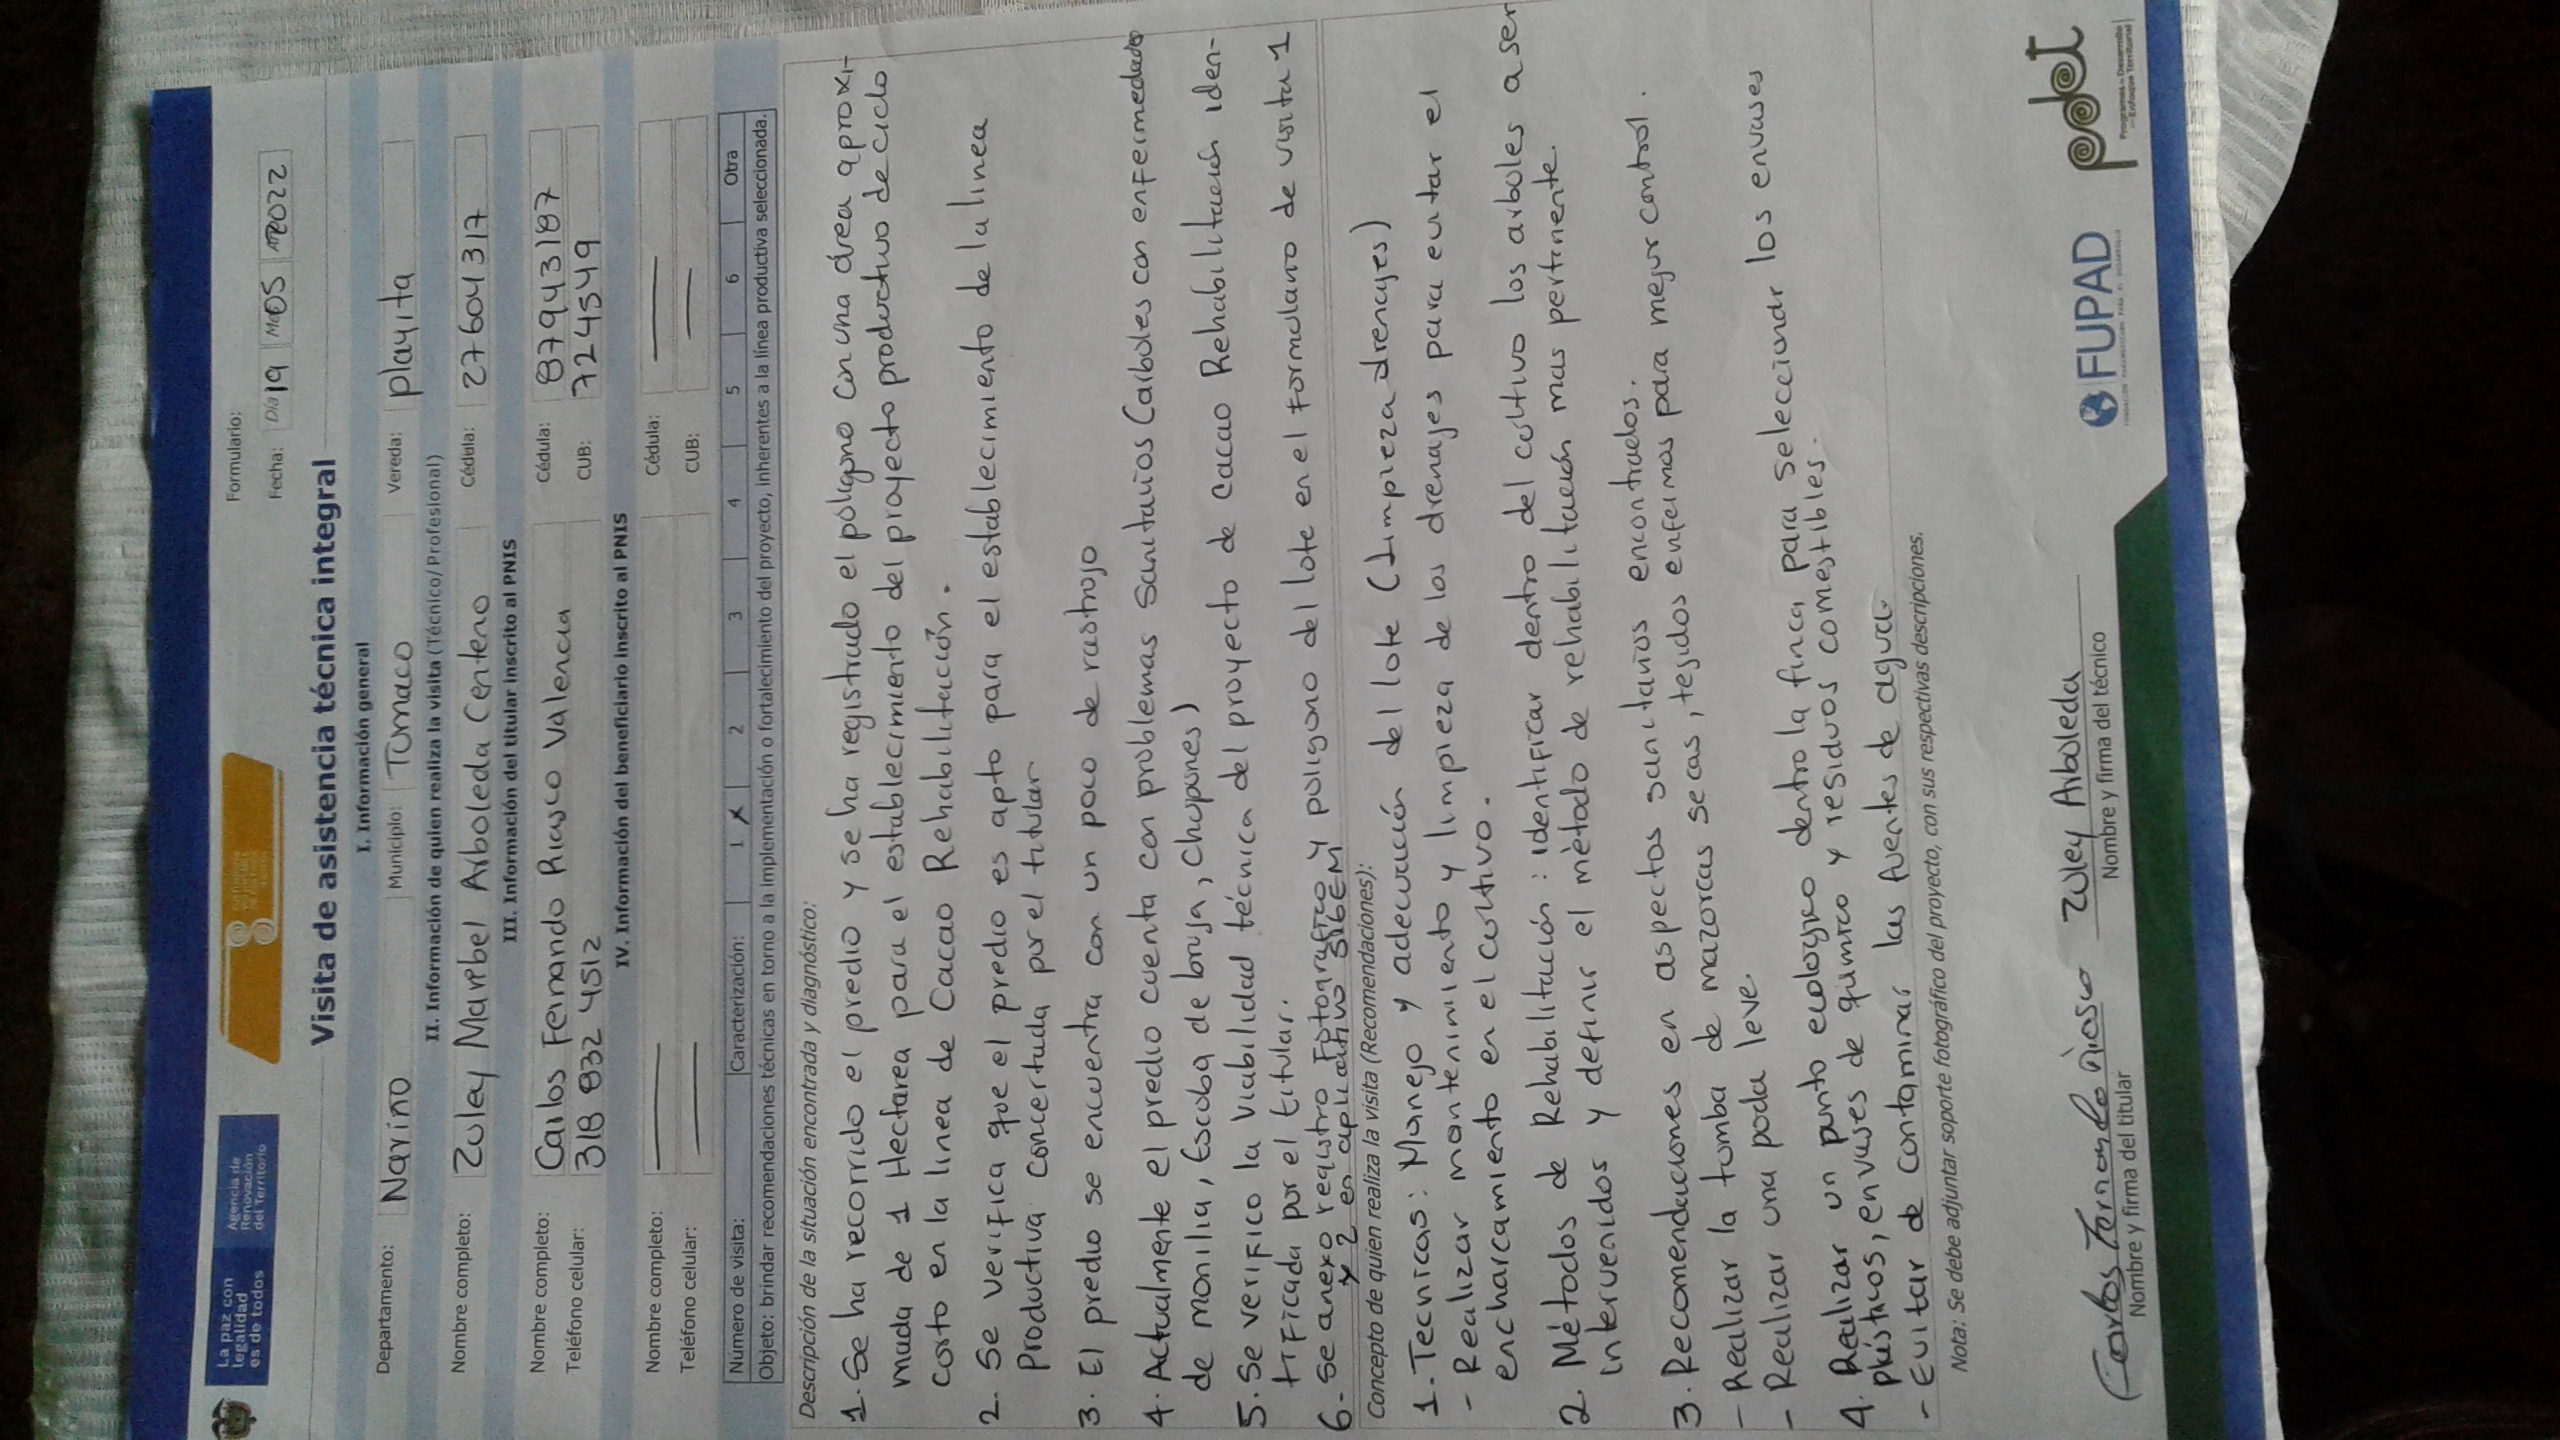 La paz con
legalidad
es de todos
Agencia de
Renovación
del Territorio
Formulario:
Fecha: Día 19 Mes 05 Año 2022
Visita de asistencia técnica integral
I. Información general
Departamento: Nariño Municipio: Tumaco Vereda: playita
II. Información de quien realiza la visita (Técnico/Profesional)
Nombre completo: Zuley Maribel Arboleda Centeno Cédula: 27604317
III. Información del titular inscrito al PNIS
Nombre completo: Carlos Fernando Riasco Valencia Cédula: 87943187
Teléfono celular: 318 832 4512 CUB: 724549
IV. Información del beneficiario inscrito al PNIS
Nombre completo: — Cédula: —
Teléfono celular: — CUB: —
Número de visita: Caracterización: 1 X 2 3 4 5 6 Otra
Objeto: brindar recomendaciones técnicas en torno a la implementación o fortalecimiento del proyecto, inherentes a la línea productiva seleccionada.
Descripción de la situación encontrada y diagnóstico:
1. Se ha recorrido el predio y se ha registrado el poligono con una área aproxi-
mada de 1 Hectarea para el establecimiento del proyecto productivo de ciclo
corto en la linea de Cacao Rehabilitación.
2. Se verifica que el predio es apto para el establecimiento de la linea
productiva concertada por el titular
3. El predio se encuentra con un poco de rastrojo
4. Actualmente el predio cuenta con problemas Sanitarios (arboles con enfermedades
de monilia, Escoba de bruja, chupones)
5. Se verifico la viabilidad técnica del proyecto de cacao Rehabilitación iden-
tificada por el titular.
6. Se anexo registro Fotografico y poligono del lote en el formulario de visita 1
y 2 en aplicativo SIGEM
Concepto de quien realiza la visita (Recomendaciones):
1. Tecnicas: Manejo y adecuación del lote (Limpieza drenajes)
- Realizar mantenimiento y limpieza de los drenajes para evitar el
encharcamiento en el cultivo.
2. Métodos de Rehabilitación: identificar dentro del cultivo los arboles a ser
intervenidos y definir el método de rehabilitación mas pertinente.
3. Recomendaciones en aspectos sanitarios encontrados.
- Realizar la tumba de mazorcas secas, tejidos enfermos para mejor control.
- Realizar una poda leve.
4. Realizar un punto ecologico dentro la finca para seleccionar los envases
plásticos, envases de químico y residuos comestibles.
- Evitar de contaminar las fuentes de agua.
Nota: Se debe adjuntar soporte fotográfico del proyecto, con sus respectivas descripciones.
Carlos Fernando Riasco Zuley Arboleda
Nombre y firma del titular Nombre y firma del técnico
FUPAD
pdet
Programas de Desarrollo
con Enfoque Territorial